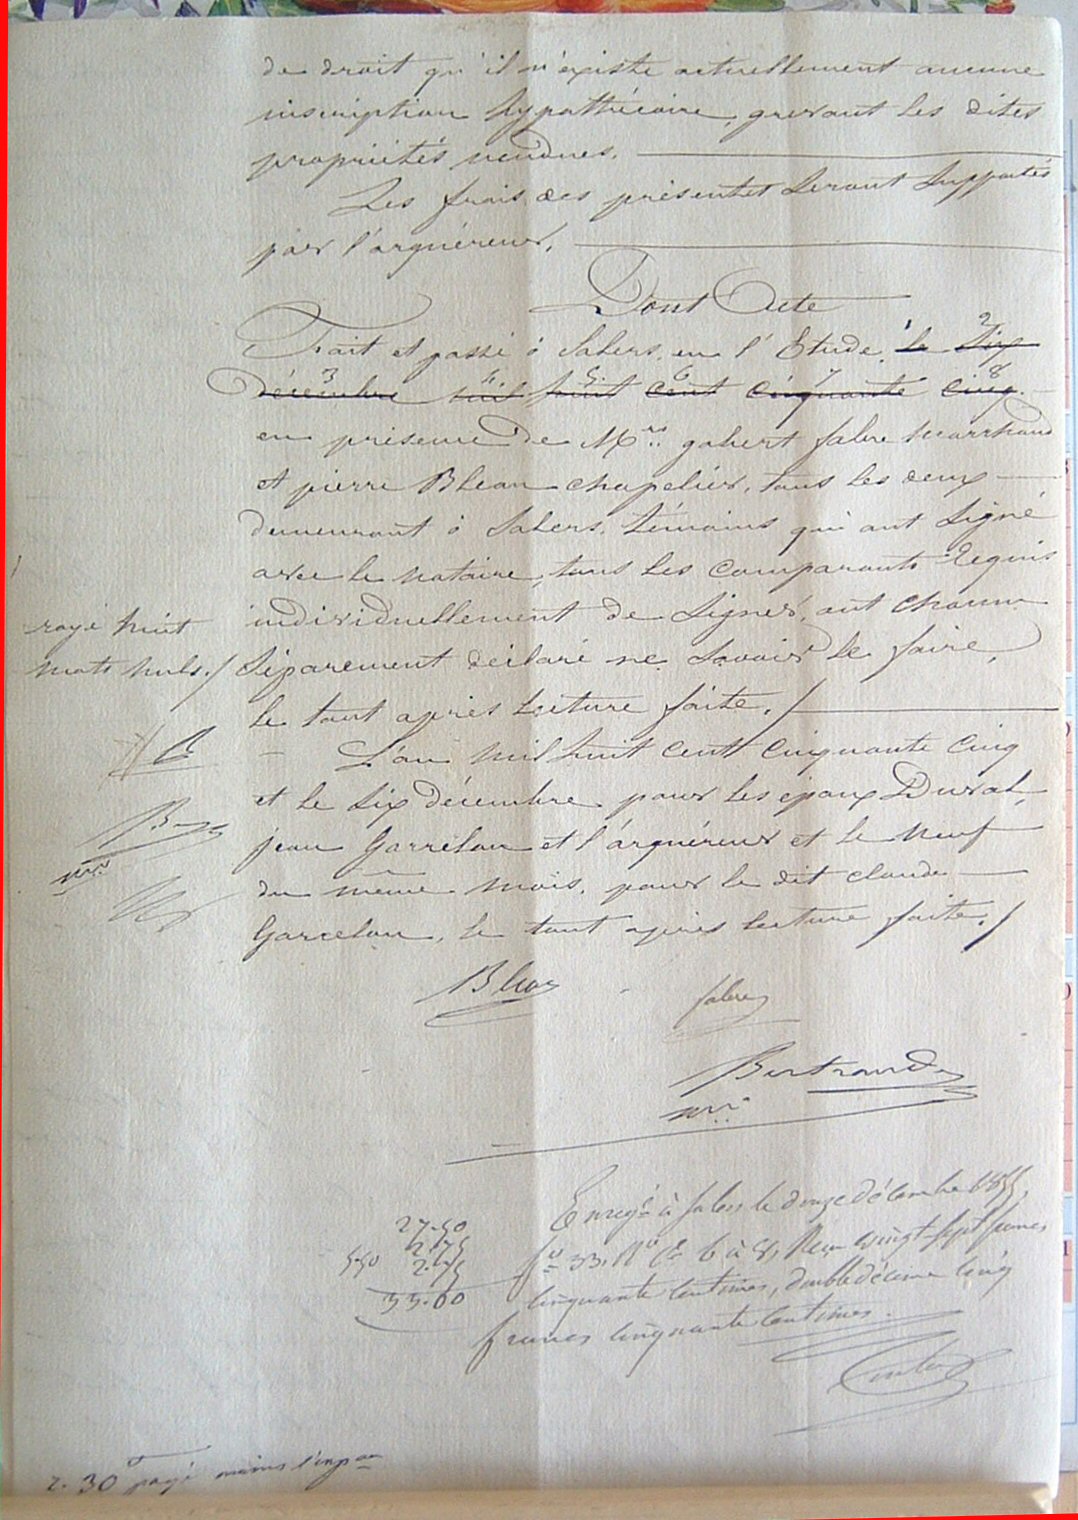 de droit qu'il n'existe actuellement aucune
inscription hypothécaire, grevant les dites
propriétés vendues.
Les frais des présentes seront supportés
par l'acquéreur.
Dont Acte
Fait et passé à Salers, en l'Etude, le six
décembre mil huit cent cinquante cinq.
en présence de Mrs gabert fabre marchand
et pierre Bleau chapelier, tous les deux
demeurant à Salers, témoins qui ont signé
avec le notaire, tous les comparants requis
individuellement de signer, ont chacun
séparement déclaré ne savoir le faire,
le tout après lecture faite./
L'an mil huit cent cinquante cinq
et le six décembre pour les epoux Duval,
jean Garcelon et l'acquéreur et le neuf
du même mois, pour le dit claude
Garcelon, le tout après lecture faite./
rayé huit
mots nuls./
Bleau fabre
Bertrand
nre
Enregé à Salers le douze décembre 1855,
fo 33. Ro Ce 6 à 8, Reçu vingt-sept francs
cinquante centimes, double décime cinq
francs cinquante centimes.
27.50
2.75
5.50 2.75
33.00
2. 30 payé moins